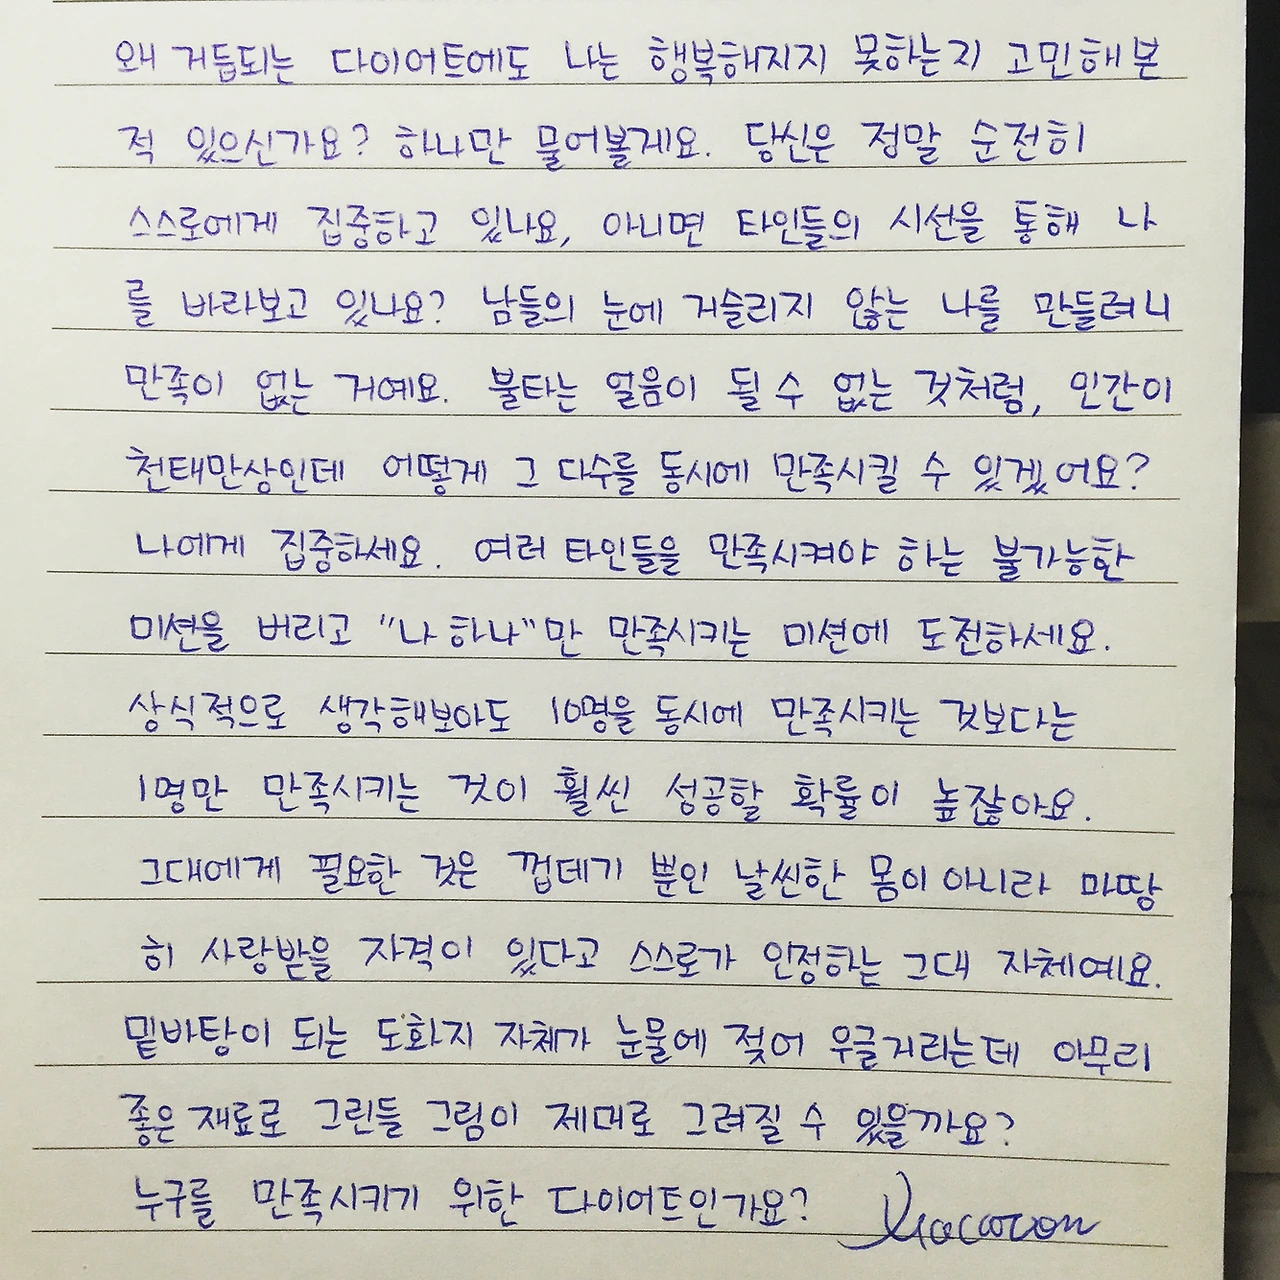 왜 거듭되는 다이어트에도 나는 행복해지지 못하는지 고민해본
적 있으신가요? 하나만 물어볼게요. 당신은 정말 순전히
스스로에게 집중하고 있나요, 아니면 타인들의 시선을 통해 나
를 바라보고 있나요? 남들의 눈에 거슬리지 않는 나를 만들려니
만족이 없는 거예요. 불타는 얼음이 될 수 없는 것처럼, 인간이
천태만상인데 어떻게 그 다수를 동시에 만족시킬 수 있겠어요?
나에게 집중하세요. 여러 타인들을 만족시켜야 하는 불가능한
미션을 버리고 "나 하나"만 만족시키는 미션에 도전하세요.
상식적으로 생각해보아도 10명을 동시에 만족시키는 것보다는
1명만 만족시키는 것이 훨씬 성공할 확률이 높잖아요.
그대에게 필요한 것은 껍데기 뿐인 날씬한 몸이 아니라 마땅
히 사랑받을 자격이 있다고 스스로가 인정하는 그대 자체예요.
밑바탕이 되는 도화지 자체가 눈물에 젖어 우글거리는데 아무리
좋은 재료로 그린들 그림이 제대로 그려질 수 있을까요?
누구를 만족시키기 위한 다이어트인가요?